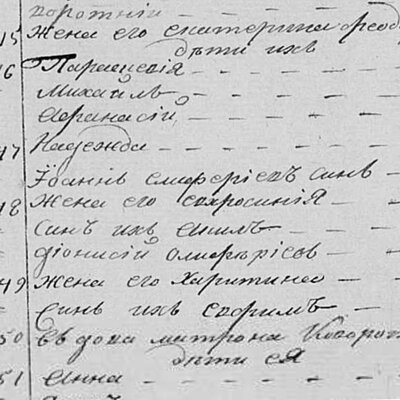 воротнїи
15 Жена его екатерина Феод
дѣти ихъ
46 Параскевїя
Михайлъ
Афанасїй
47 Надежда
Їоаннъ елиферїевъ синъ
48 Жена его ефросинїя
Синъ ихъ емилъ
Дїонисїй олиферїевъ
49 Жена его Харитина
Синъ ихъ ефимъ
50 Вдова митрона Коворот
дѣти ея
51 Анна